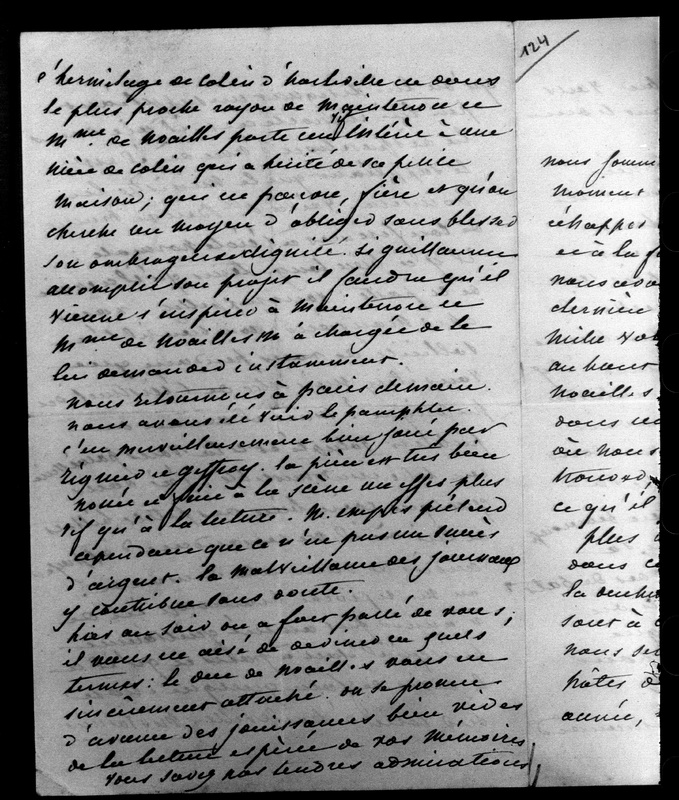 124
l'hermitage de Colin d'harleville est dans
le plus proche rayon de Maintenon et
Mme de Noailles porte un intérêt à une
nièce de Colin qui a hérité de sa petite
maison; qui est pauvre, fière et qu'on
cherche un moyen d'obliger sans blesser
son ombrageuse dignité. Si guillaume
accomplit son projet il faudra qu'il
vienne s'inspirer à Maintenon et
Mme de Noailles m'a chargée de le
lui demander instamment.
nous retournons à paris demain.
nous avons été voir le pamphlet.
c'est merveilleusement bien joué par
Régnier et geffroy. la pièce est très bien
nouée et fait à la scène un effet plus
vif qu'à la lecture. M. empis prétend
cependant que ce n'est pas un succès
d'argent. la malveillance des journaux
y contribue sans doute.
hier au soir on a fort parlé de vous;
il vous est aisé de deviner en quels
termes: le duc de Noailles vous est
sincèrement attaché. on se promet
d'avance des jouissances bien vives
de la lecture espérée de vos Mémoires
vous savez nos tendres admirations
nous somm
moment
échappés
et à la f
nous avo
dernière
mille
au haut
Noailles
dans un
où nous
ce qu'il
plus
dans c
sont à
nous se
hôtes d
année,